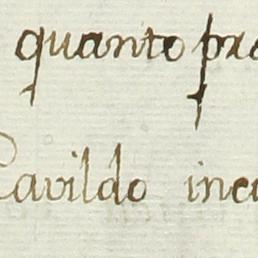 quanto pre
Cavildo inc